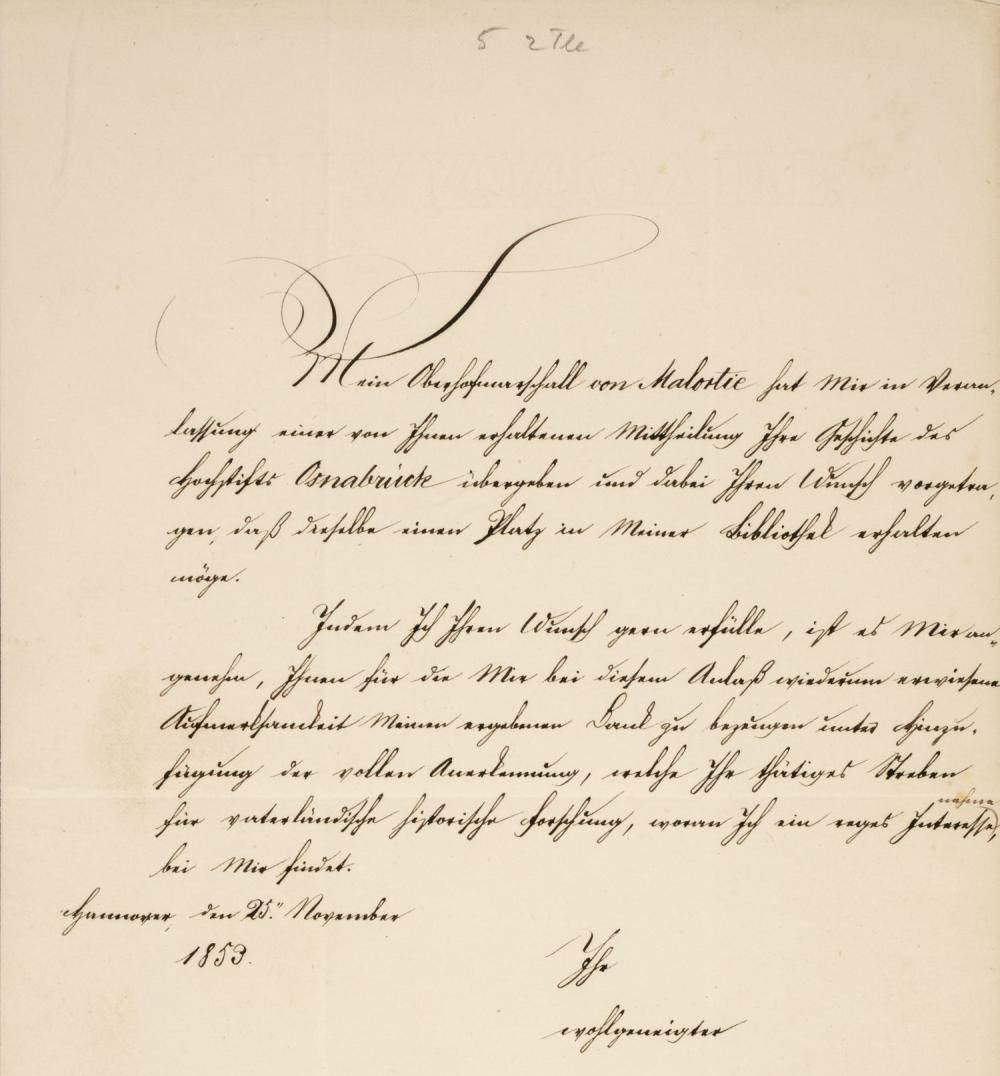 5 2 Tle
Mein Oberhofmarschall von Malortie hat Mir in Veran-
lassung einer von Ihnen erhaltenen Mittheilung Ihre Geschichte des
Hochstifts Osnabrück übergeben und dabei Ihren Wunsch vorgetra-
gen, daß dieselbe einen Platz in Meiner Bibliothek erhalten
möge.
Indem Ich Ihren Wunsch gern erfülle, ist es Mir an-
genehm, Ihnen für die Mir bei diesem Anlaß wiederum erwiesene
Aufmerksamkeit Meinen ergebenen Dank zu bezeugen unter Hinzu-
fügung der vollen Anerkennung, welche Ihr thätiges Streben
nehme
für vaterländische historische Forschung, woran Ich ein reges Interesse,
bei Mir findet.
Hannover, den 25. November
1853.
Ihr
wohlgeneigter